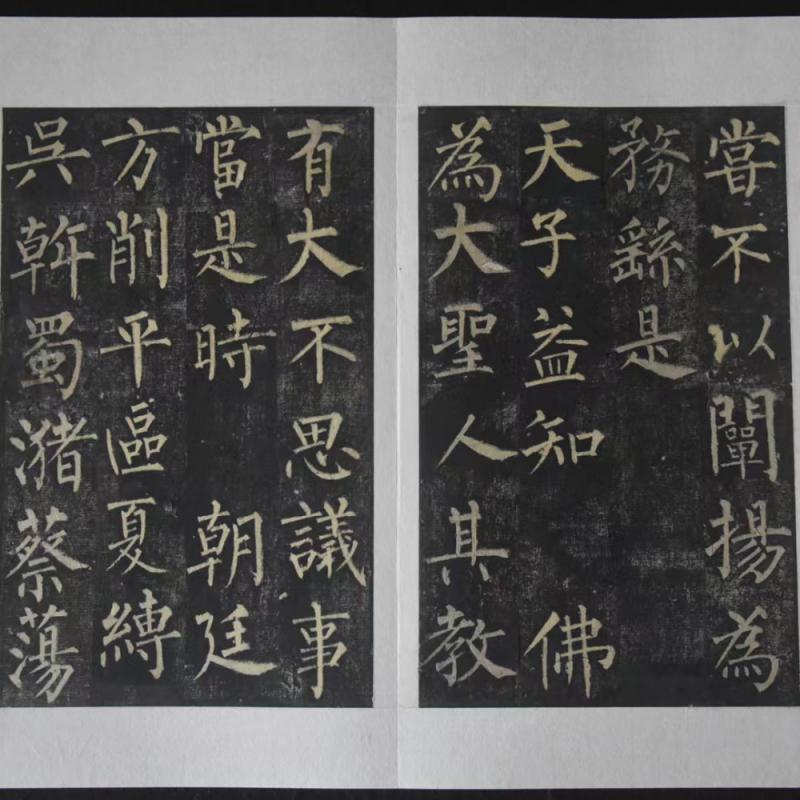 甞不以闡揚為
務繇是
天子益知 佛
為大聖人其教
有大不思議事
當是時 朝廷
方削平區夏縛
吳斡蜀瀦蔡蕩